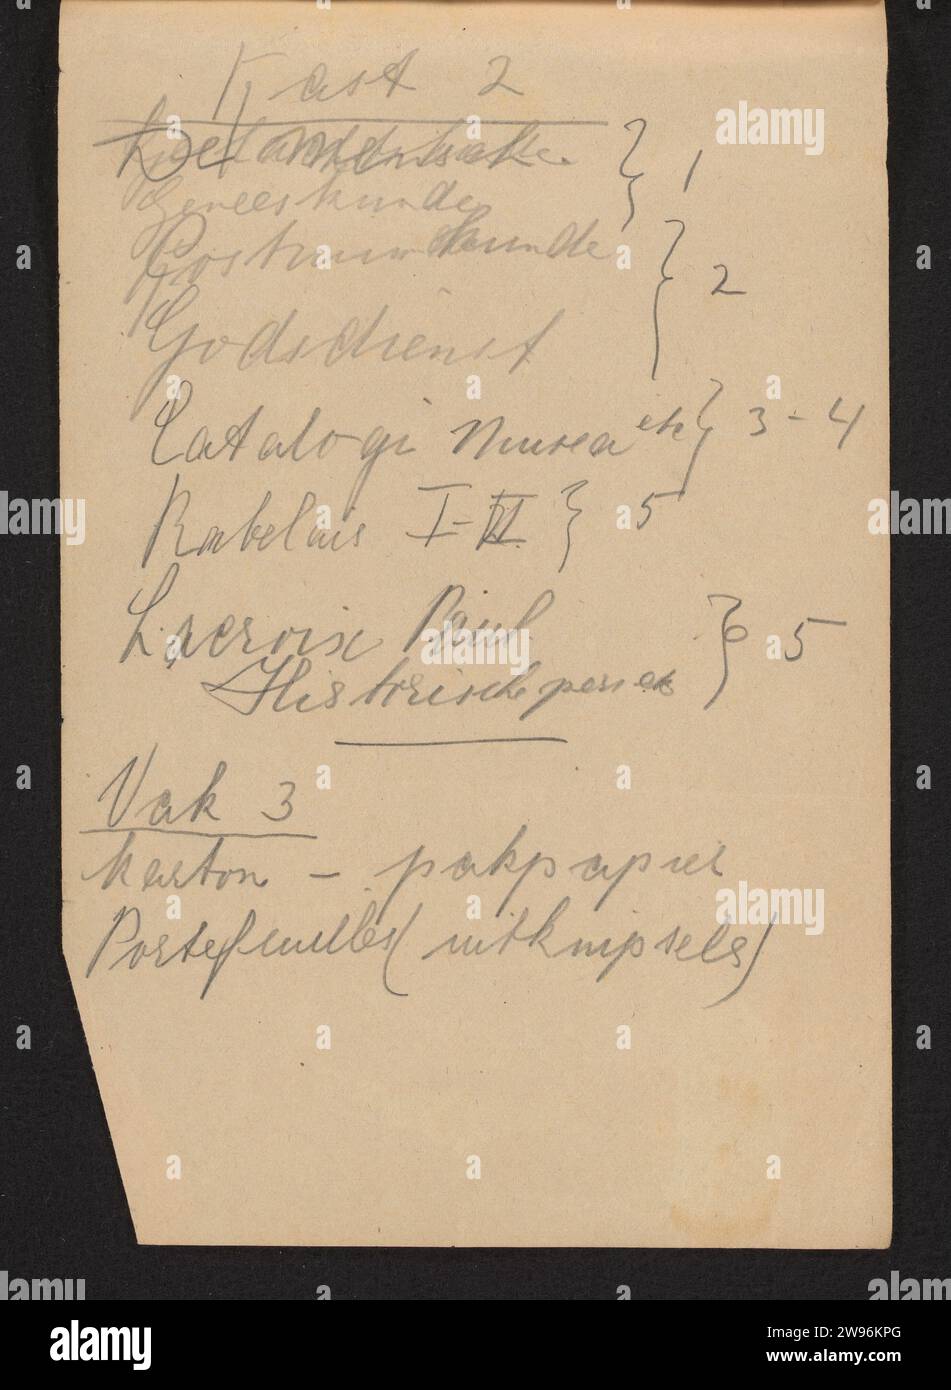 Kast 2
Geneeskunde } 1
kunde } 2
Godsdienst
Catalogi Musea etc } 3-4
Rabelais I-VI } 5
Lacroix Paul } 5
Historische
Vak 3
karton - pakpapier
Portefeuilles (uitknipsels)
alamy
Image ID: 2W96KPG
www.alamy.com